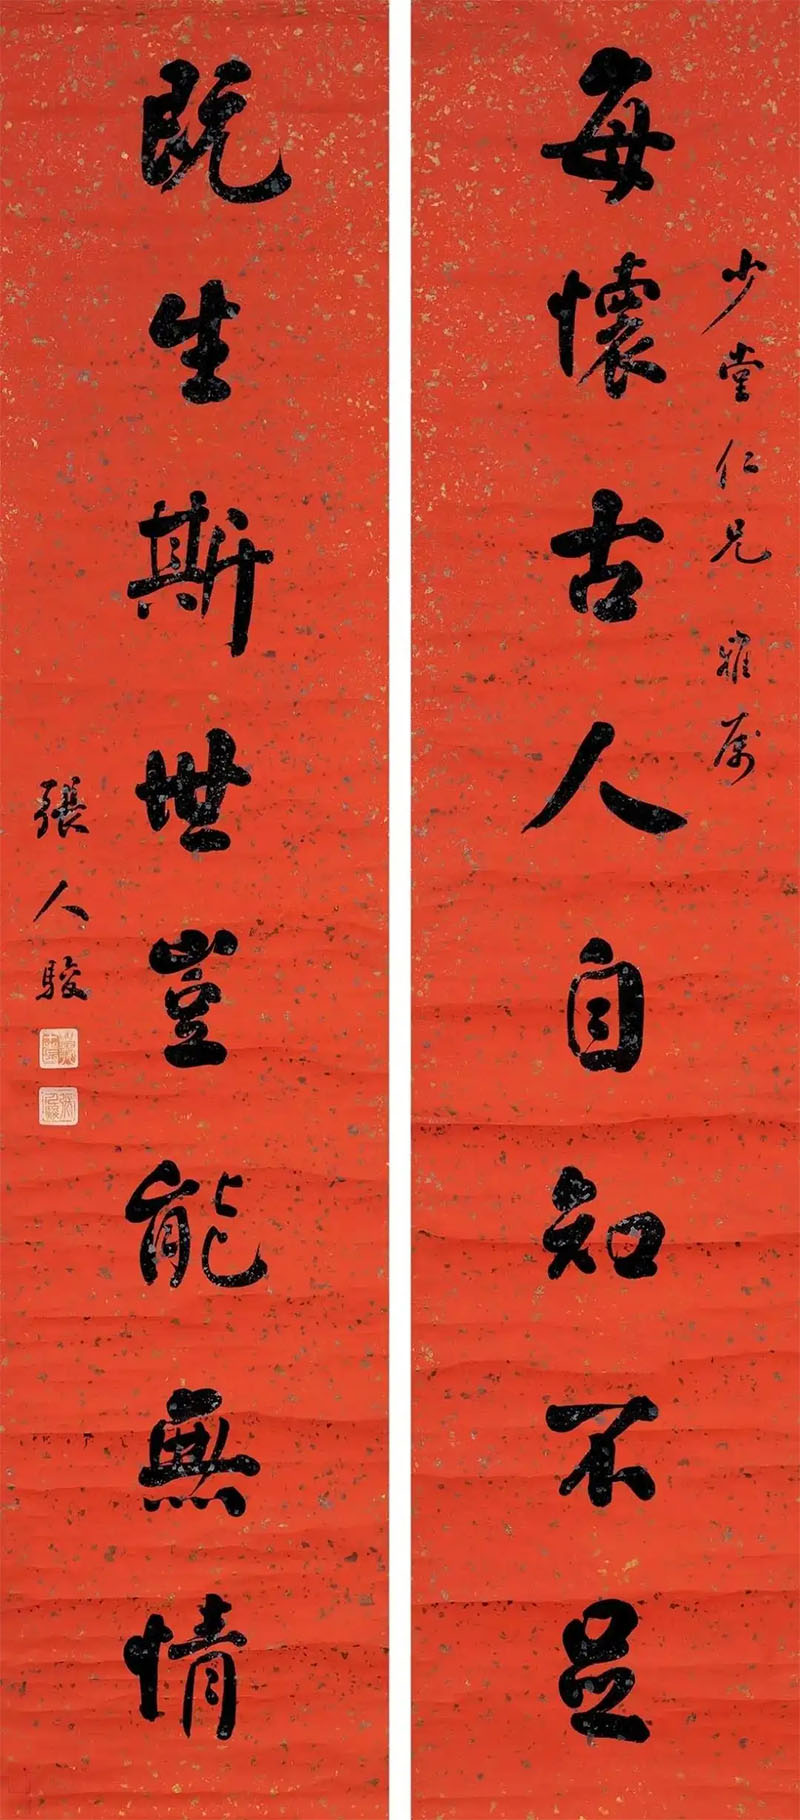 少堂仁兄雅属
每懷古人自知不足
既生斯世豈能無情
張人駿